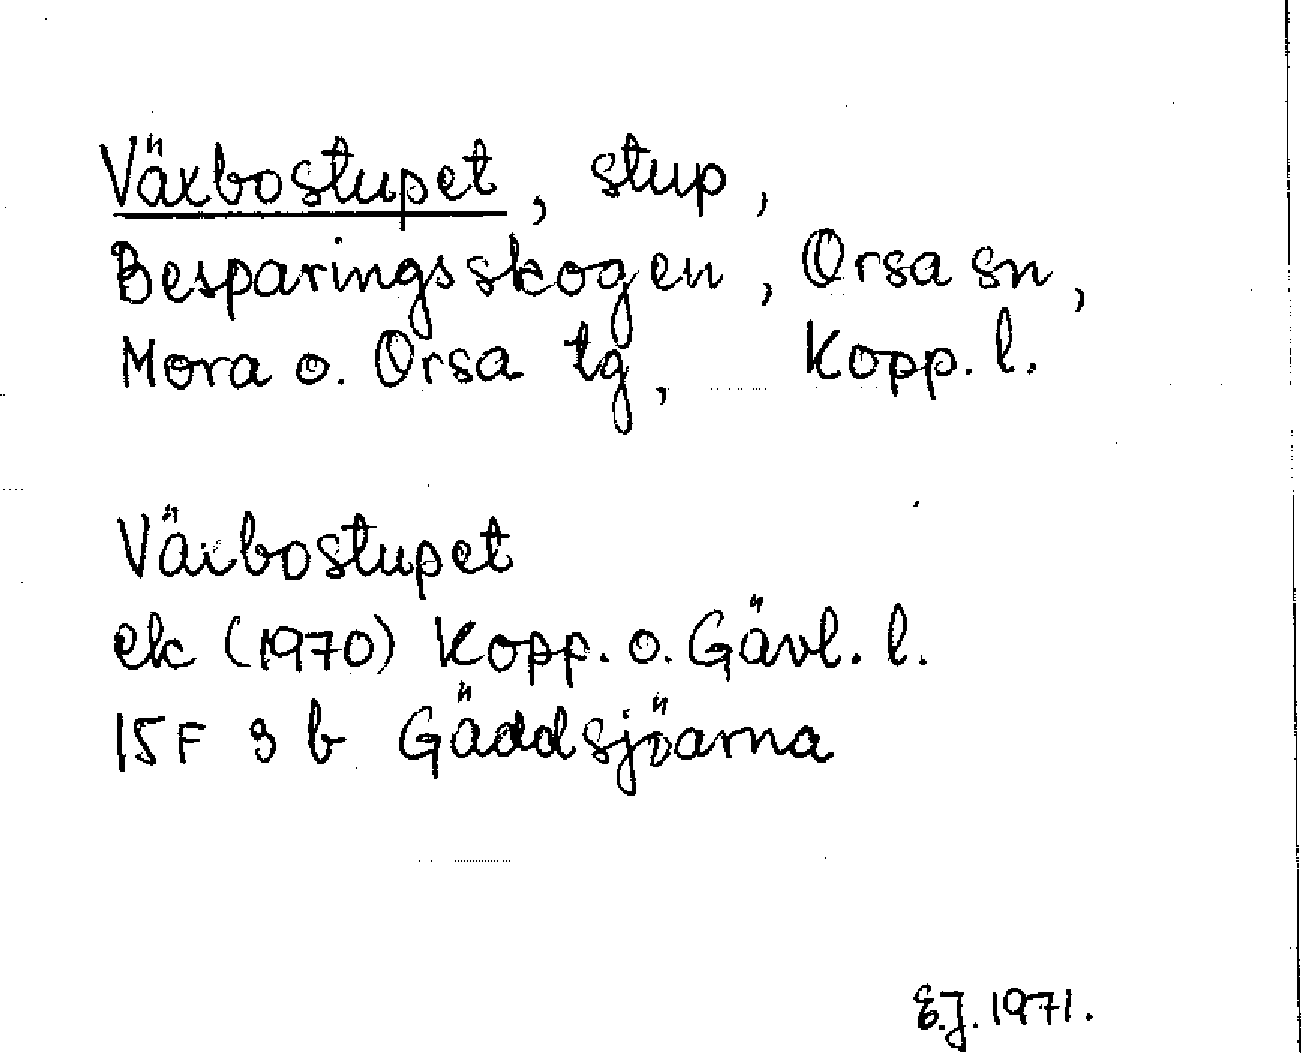 Växbostupet, stup,
Besparingsskogen, Orsa sn,
Mora o. Orsa tg, Kopp. l.
Växbostupet
ek (1970) Kopp. o. Gävl. l.
15F 9 b Gäddsjöarna
E.J. 1971.